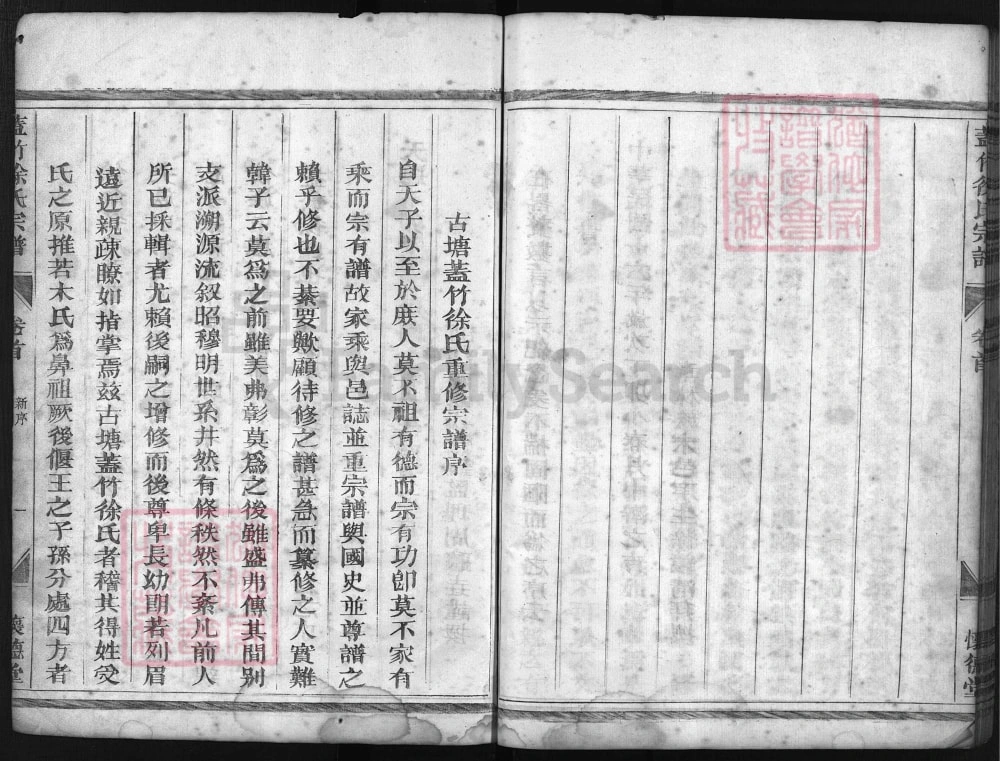 蓋竹徐氏宗譜
卷首
懷德堂
古塘蓋竹徐氏重修宗譜序
自天子以至於庶人莫不祖有德而宗有功卽莫不家有
乘而宗有譜故家乘與邑誌並重宗譜與國史並尊譜之
賴乎修也不綦要歟顧待修之譜甚急而纂修之人實難
韓子云莫爲之前雖美弗彰莫爲之後雖盛弗傳其間別
支派溯源流叙昭穆明世系井然有條秩然不紊凡前人
所已採輯者尤賴後嗣之增修而後尊卑長幼朗若列眉
遠近親疎瞭如指掌焉玆古塘蓋竹徐氏者稽其得姓受
氏之原推若木氏爲鼻祖厥後偃王之子孫分處四方者
蓋竹徐氏宗譜
卷首
新序
一
懷德堂
FamilySearch